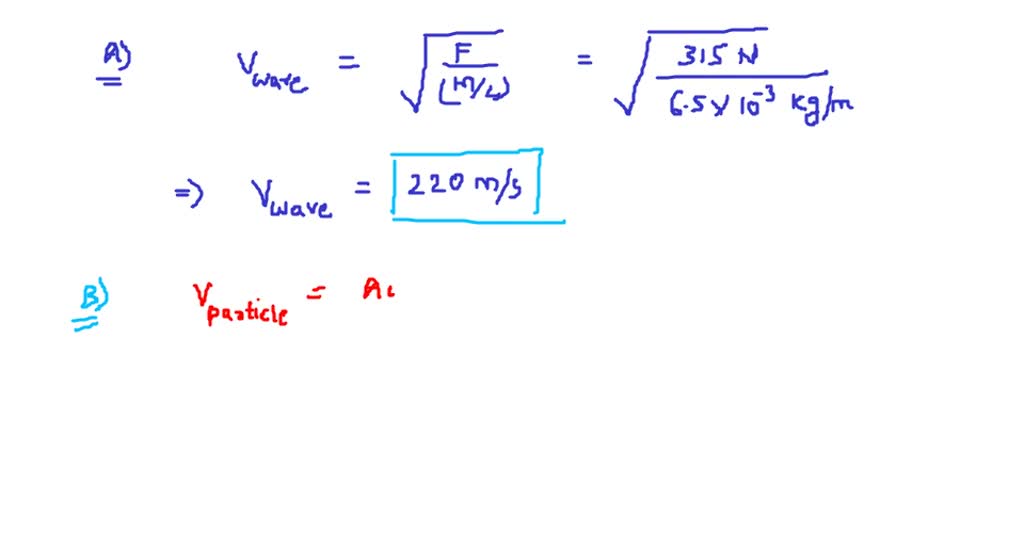 A) V wave = √(F/(m/L)) = √(315 N / 6.5 × 10⁻³ kg/m)
=> V wave = 220 m/s
B) V particle = A